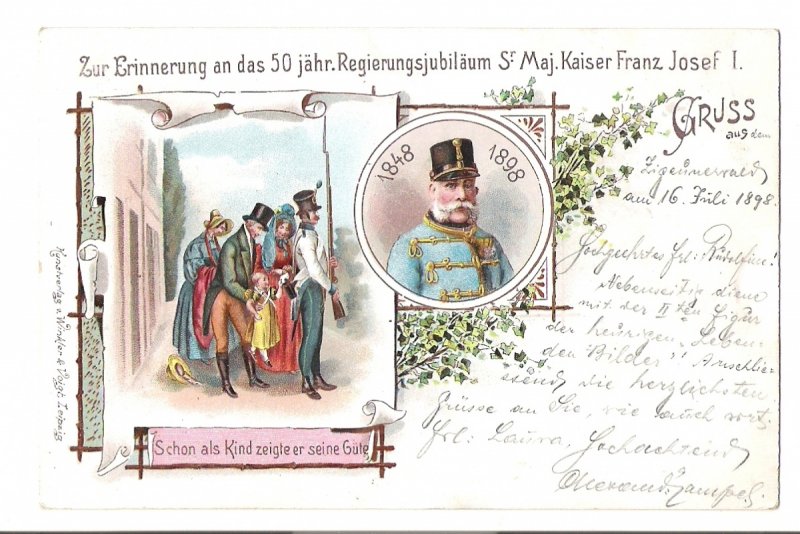 Zur Erinnerung an das 50 jähr. Regierungsjubiläum Sr Maj. Kaiser Franz Josef I.
GRUSS
aus dem
Zigeunerwald
am 16. Juli 1898.
1848 1898
Hochgeehrtes Frl: Rudolfine!
Nebenseitig diene
mit der IIten Figur
der heurigen "Leben-
den Bilder"! Anschlie-
ssend die herzlichsten
Grüsse an Sie, wie auch
Frl: Laura, Hochachtend
Schon als Kind zeigte er seine Güte
Kunstverlag v. Winkler & Voigt, Leipzig